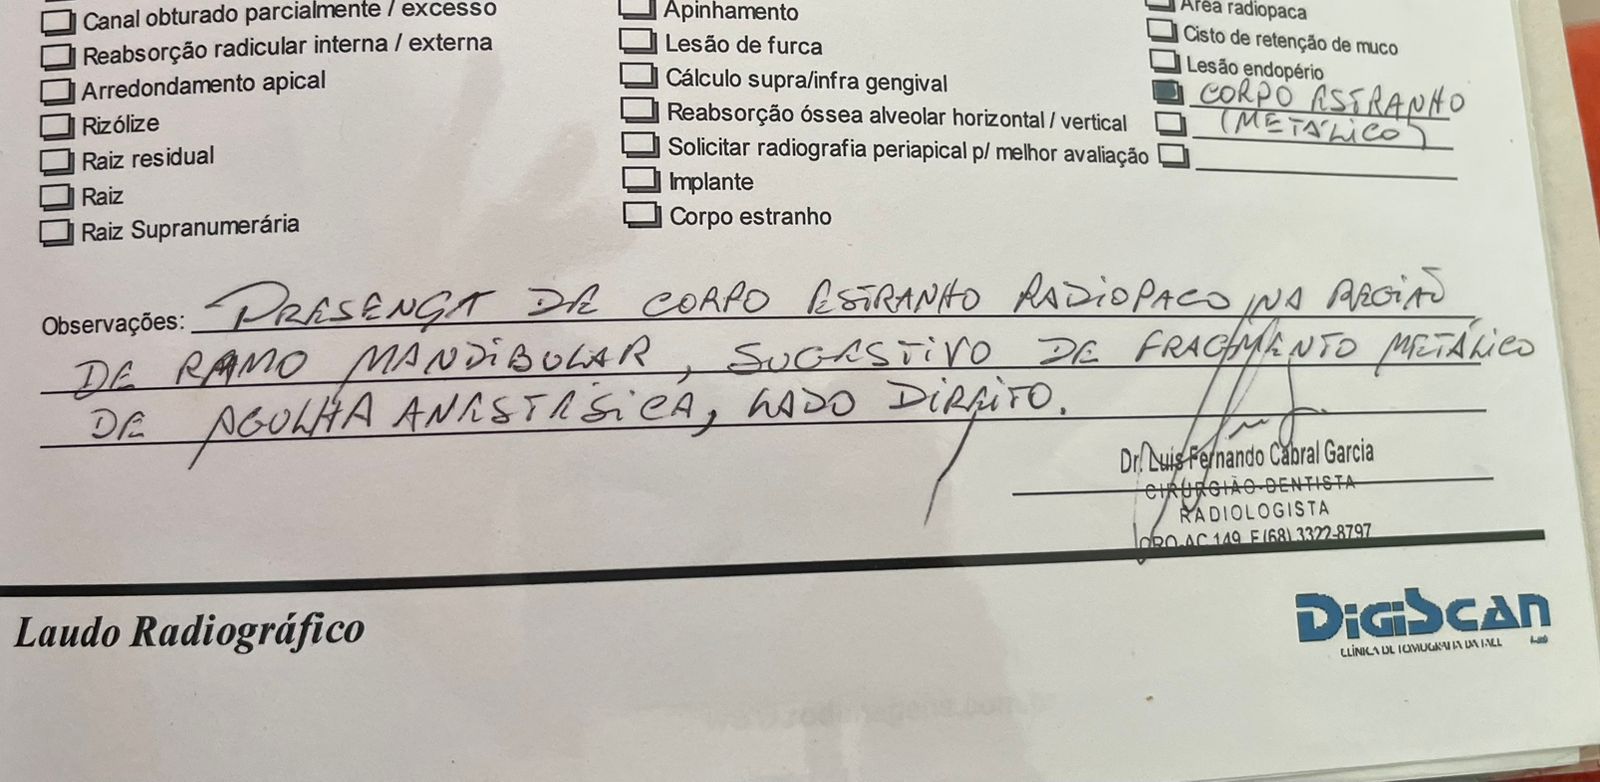 Canal obturado parcialmente / excesso
Reabsorção radicular interna / externa
Arredondamento apical
Rizólize
Raiz residual
Raiz
Raiz Supranumerária
Apinhamento
Lesão de furca
Cálculo supra/infra gengival
Reabsorção óssea alveolar horizontal / vertical
Solicitar radiografia periapical p/ melhor avaliação
Implante
Corpo estranho
Área radiopaca
Cisto de retenção de muco
Lesão endopério
CORPO ESTRANHO
(METÁLICO)
Observações: PRESENÇA DE CORPO ESTRANHO RADIOPACO NA REGIÃO
DE RAMO MANDIBULAR, SUGESTIVO DE FRAGMENTO METÁLICO
DE AGULHA ANESTÉSICA, LADO DIREITO.
Dr. Luis Fernando Cabral Garcia
CIRURGIÃO-DENTISTA
RADIOLOGISTA
CRO-AC 149 F (68) 3322-8797
Laudo Radiográfico
DIGISCAN
CLÍNICA DE TOMOGRAFIA DA FACE